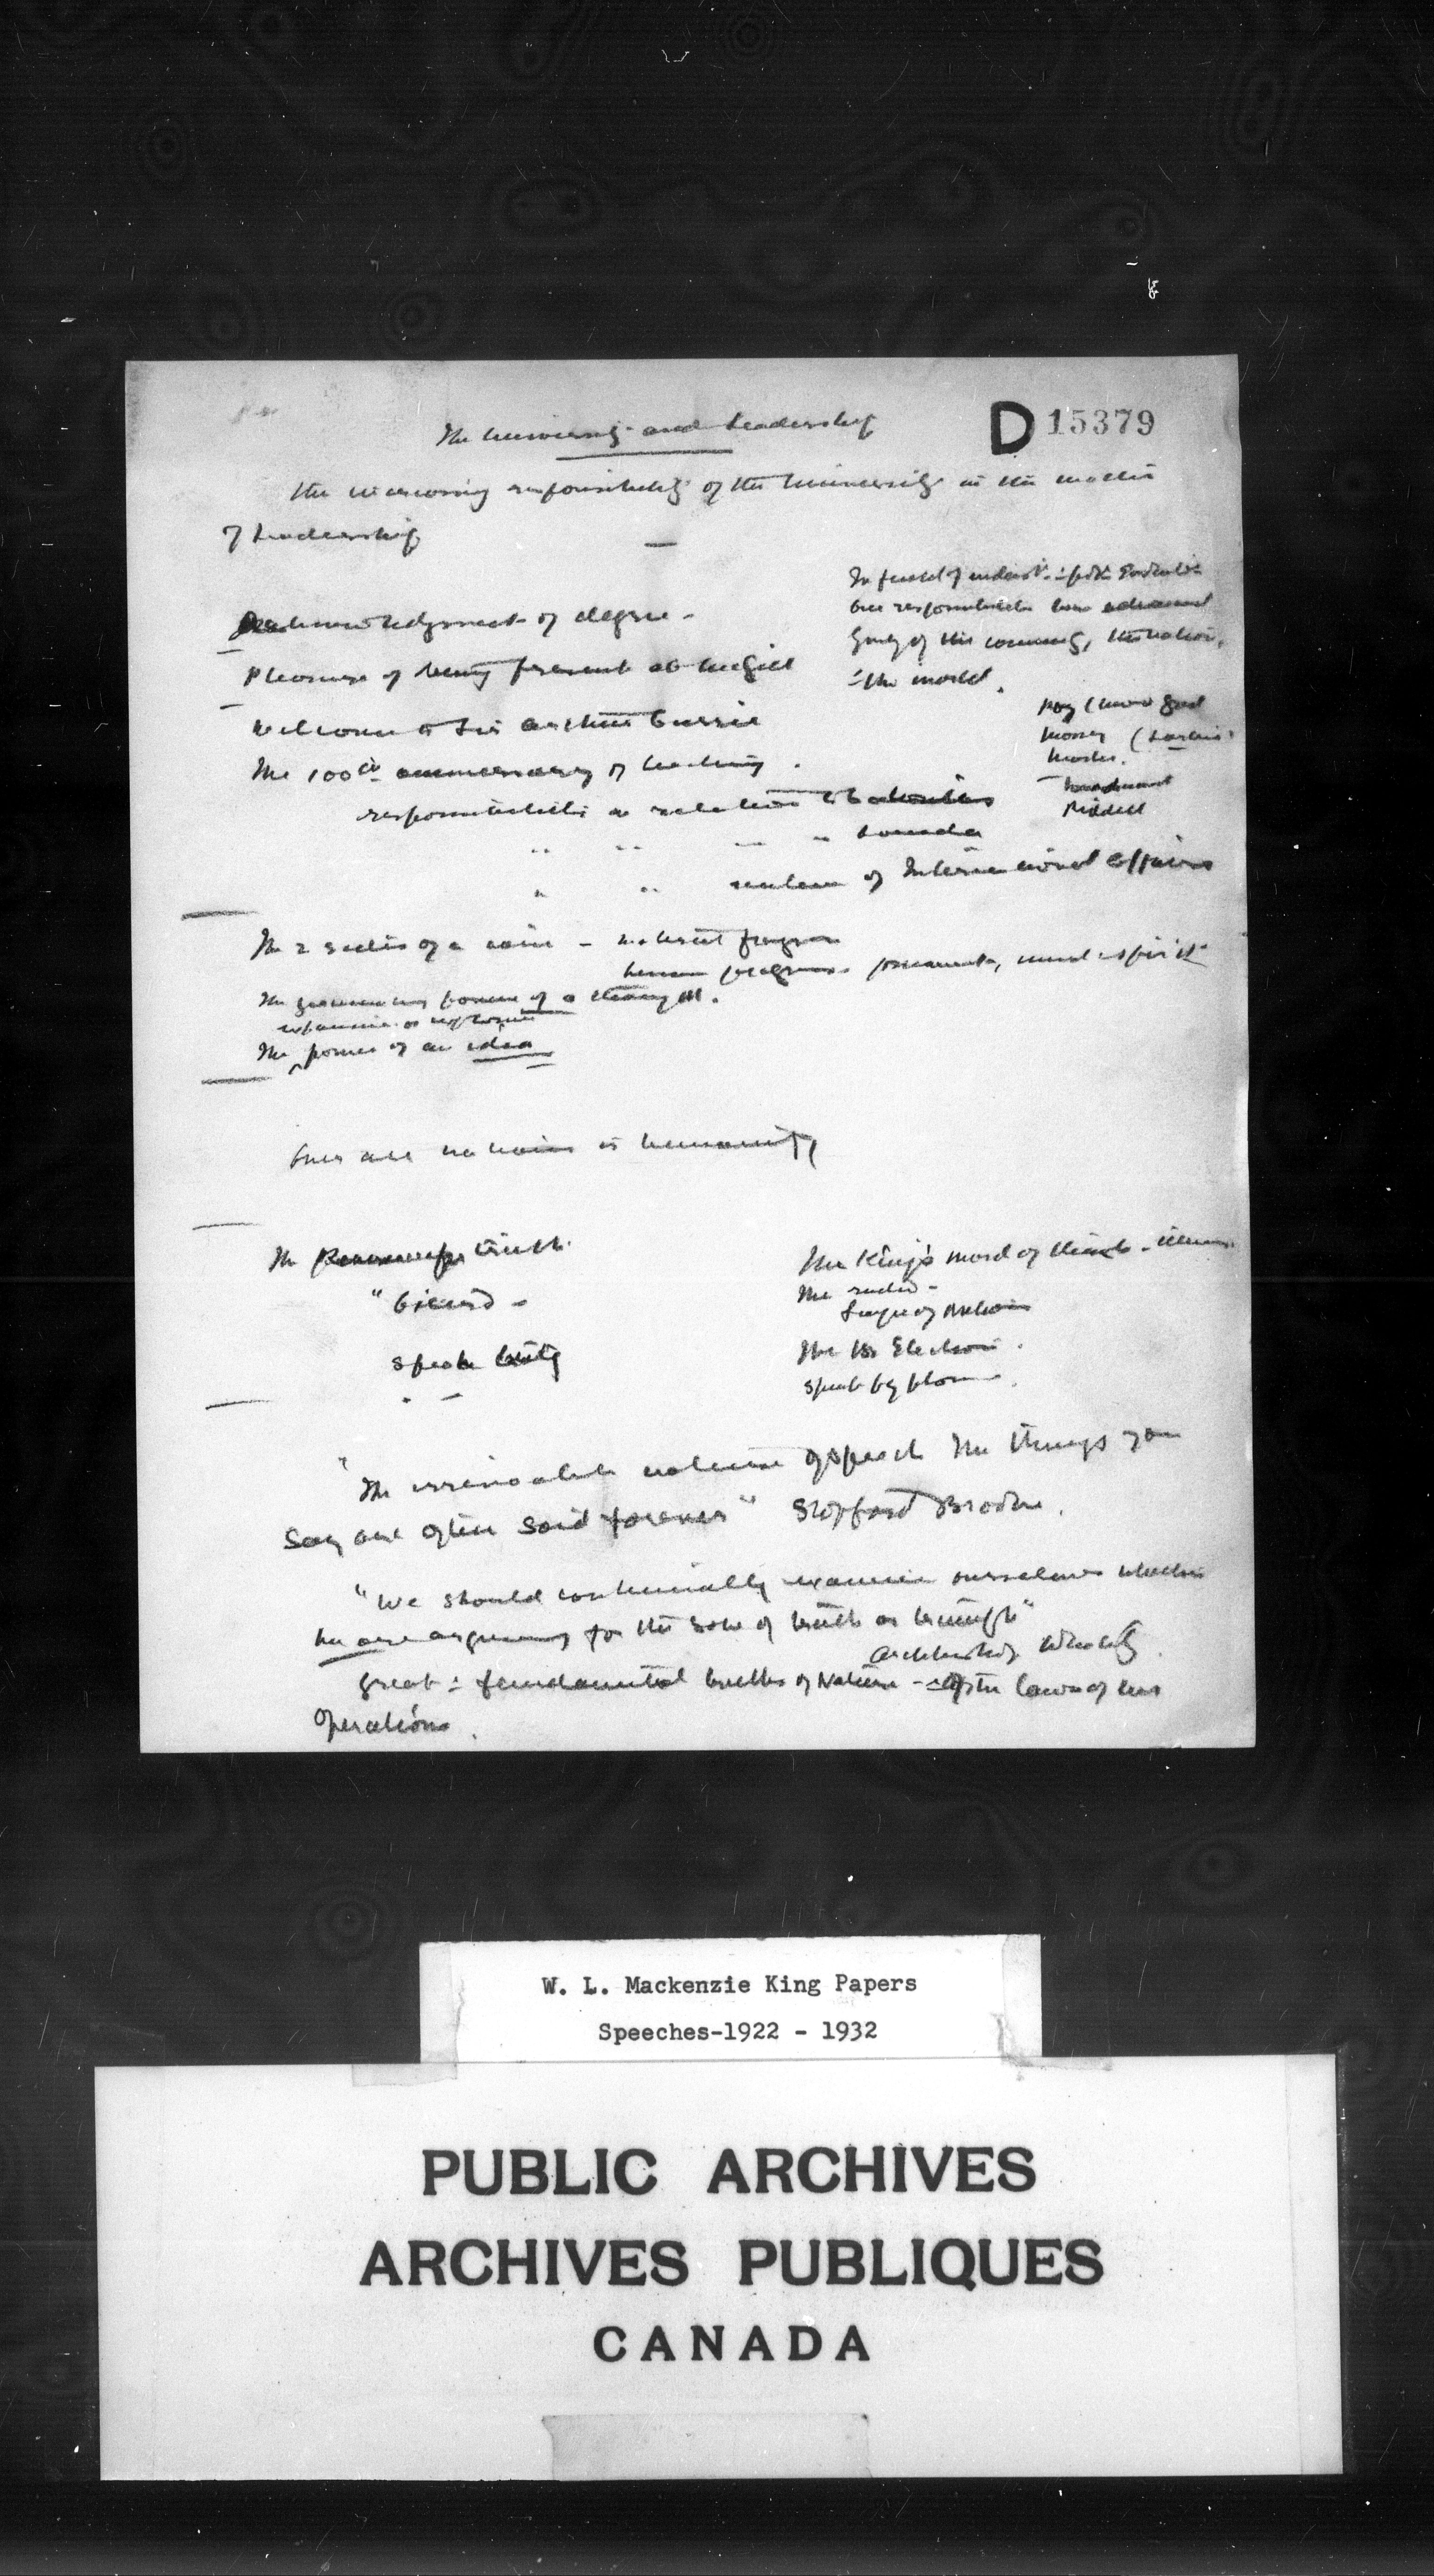 The University and Leadership
D 15379
The increasing responsibility of the University in the matter
of Leadership
Acknowledgment of degree -
Pleasure of being present at McGill
Welcome to Sir Arthur Currie
The 100th anniversary of teaching.
responsibility in relation to
" " " " Canada
" " nature of International Affairs
In field of
our responsibilities have advanced
the nation,
the world.
Massey
Riddell
The 2 sides of a coin - material progress
human progress mind & spirit
The power of a thought.
expansive or explosive
The power of an idea
Over all nations is humanity
The truth.
speak truth
The King's word of thanks -
The radio -
League of Nations
The Election.
speak by phone.
"The irrevocable nature of speech The things you
say are often said forever" Stopford Brooke.
"We should continually examine ourselves whether
we are arguing for the sake of truth or triumph"
Archbishop Whately.
Great & fundamental truths of Nature - & of the laws of her
operations.
W. L. Mackenzie King Papers
Speeches-1922 - 1932
PUBLIC ARCHIVES
ARCHIVES PUBLIQUES
CANADA